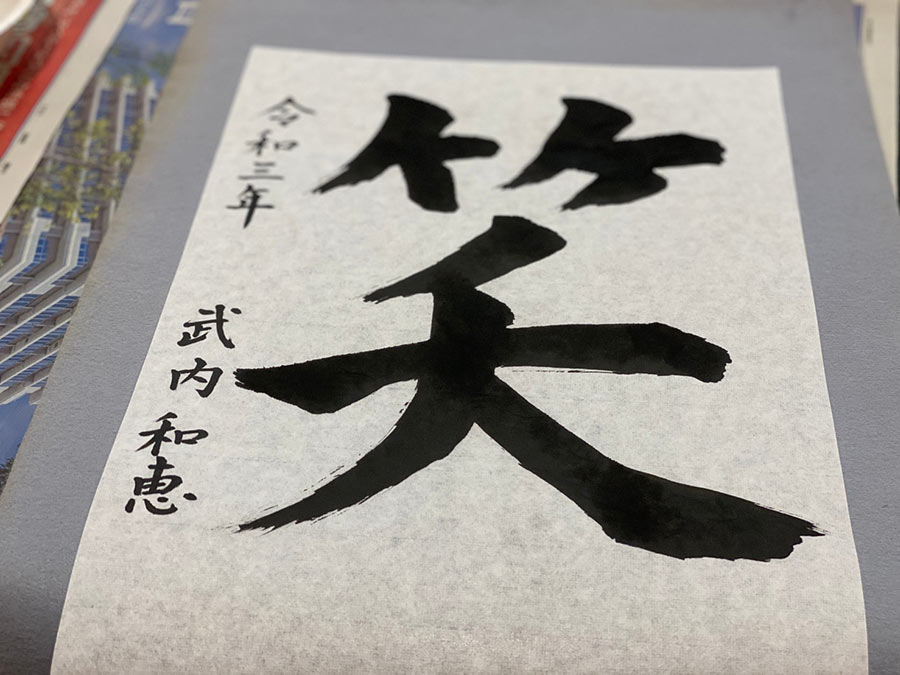 笑
令和三年
武内和恵